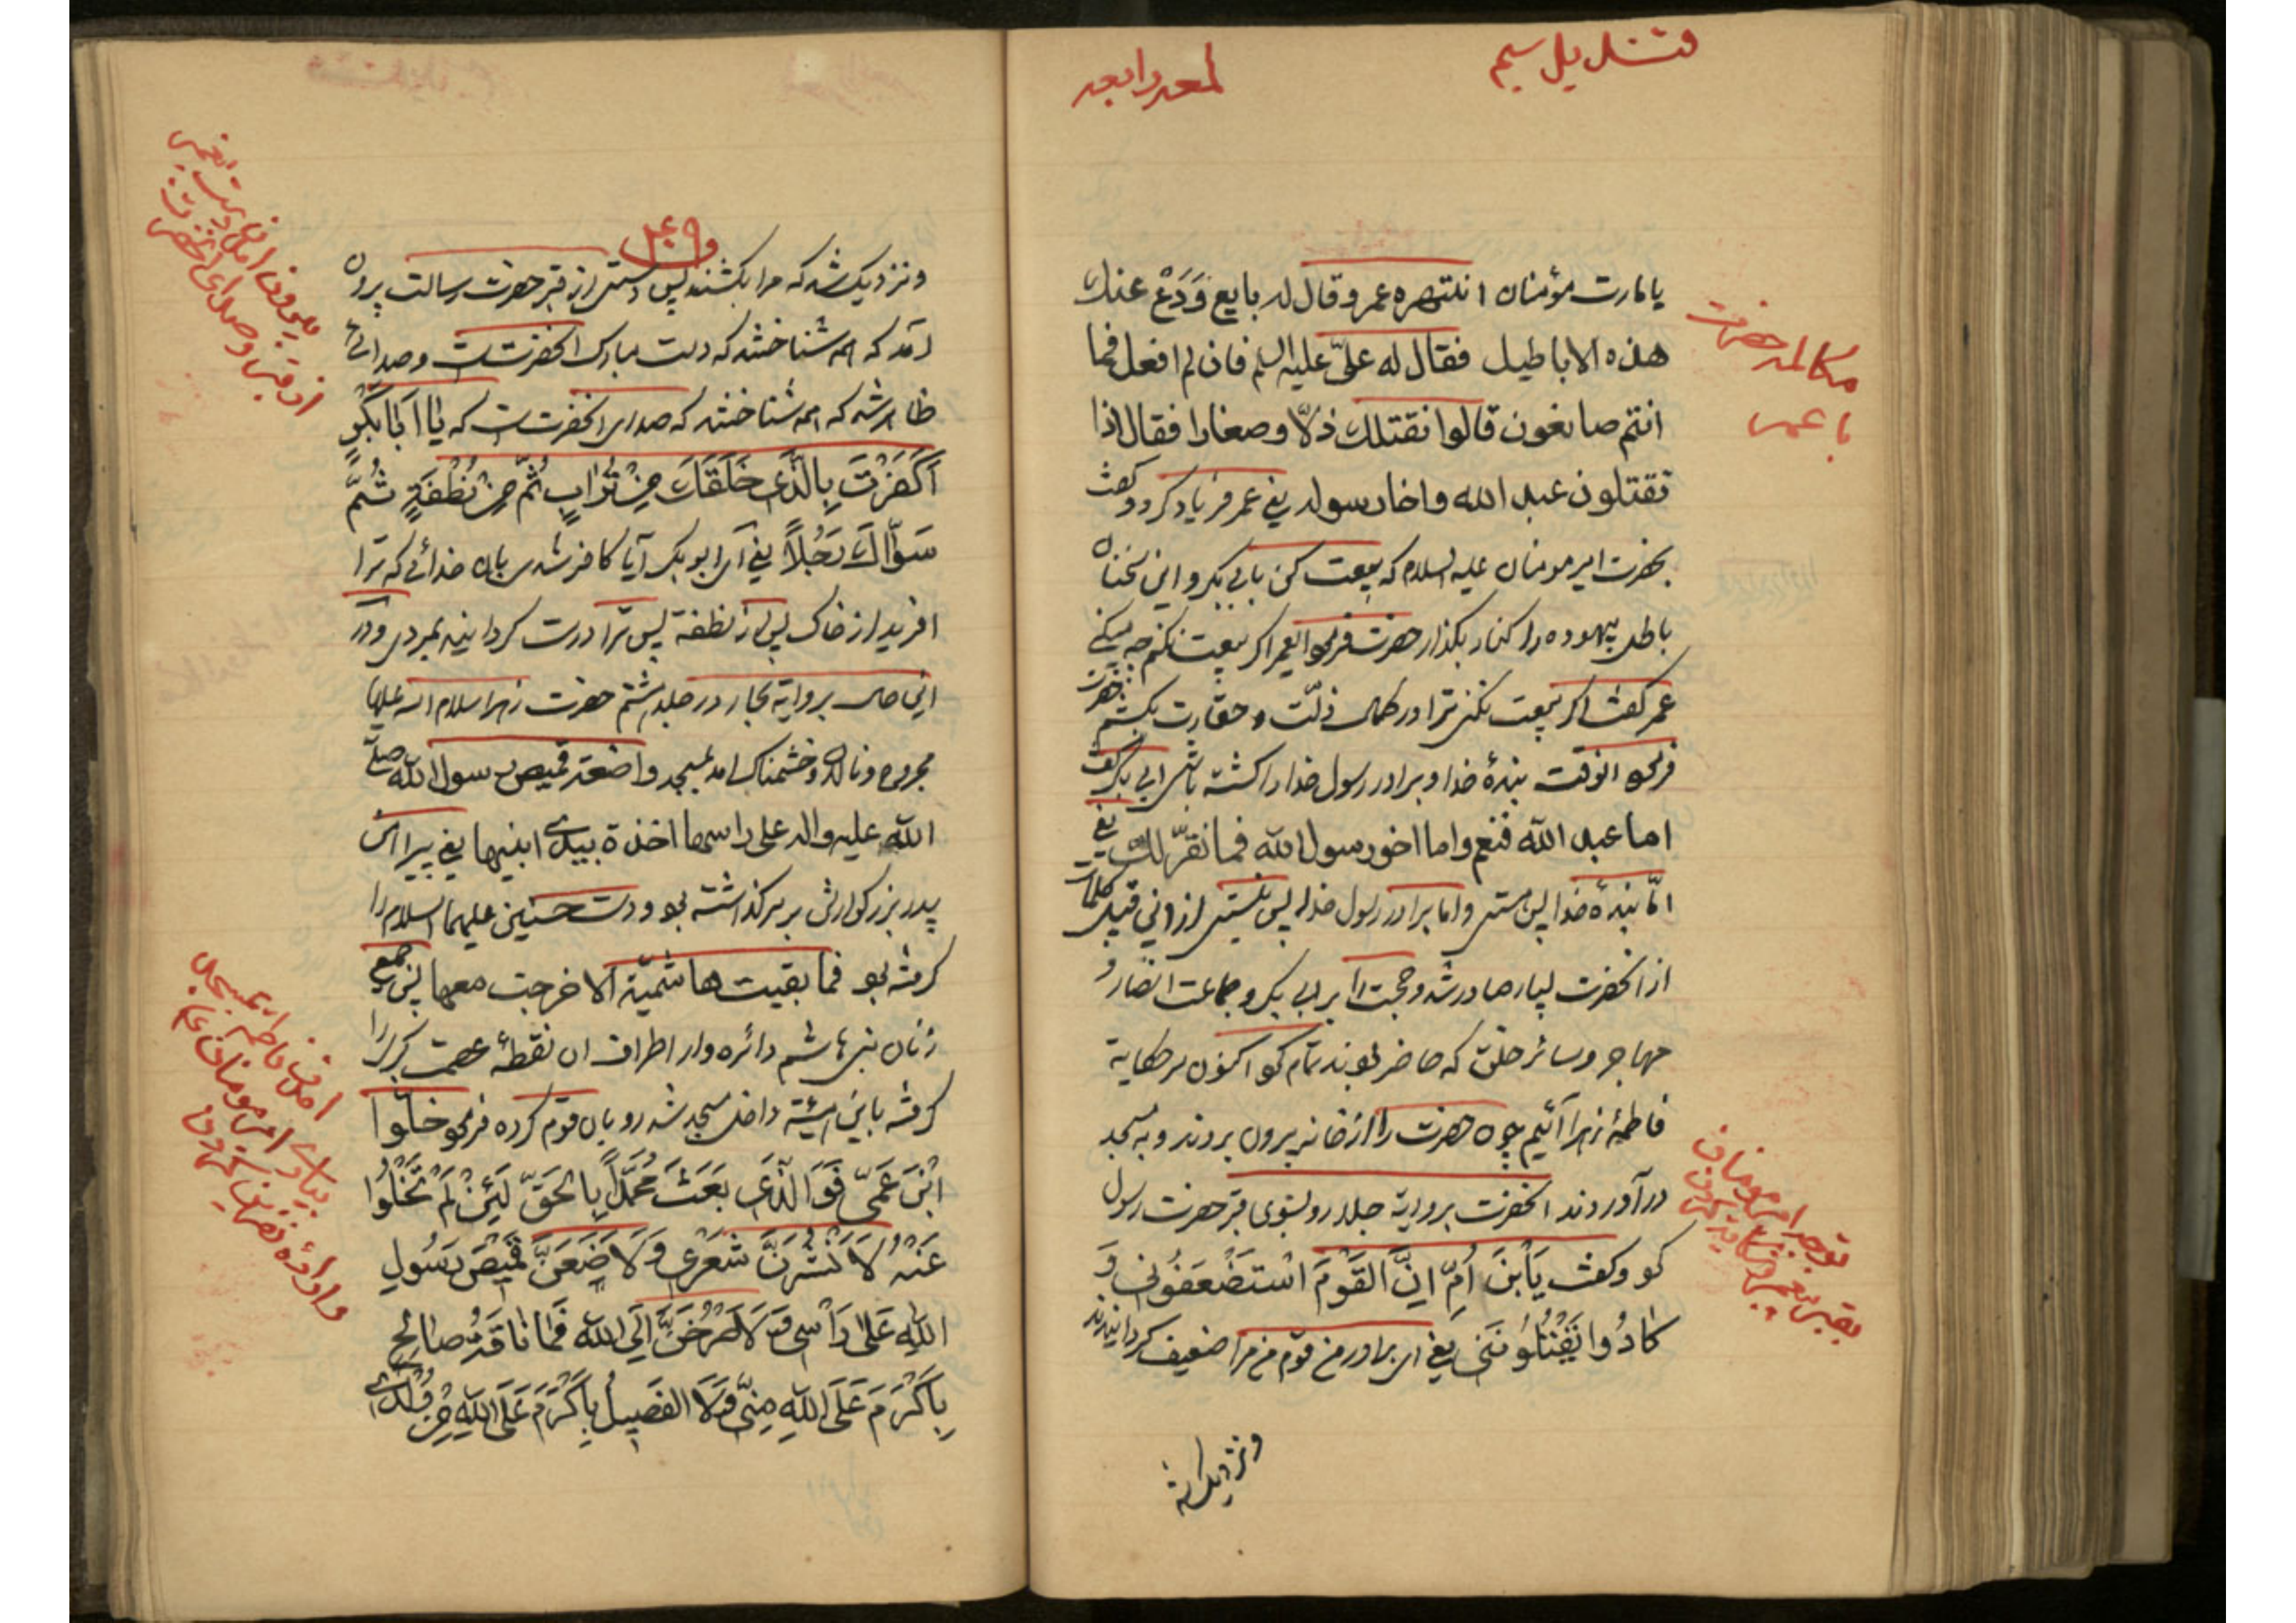 قندیل سیم
لمعه رابعه
یا مارت مؤمنان انتهره عمر و قال له بایع وَدَعْ عنك
هذه الاباطیل فقال له علیّ علیه السلم فان لم افعل فما
انتم صانعون قالوا نقتلك ذلّا و صغارا فقال اذا
تقتلون عبد الله و اخا رسوله یعنی عمر فریاد کرد و گفت
بحضرت امیر مومنان علیه السلام که بیعت کن با ابی بکر و این سخنان
باطل بیهوده را کنار بگذار حضرت فرمود ایعمر اگر بیعت نکنم چه میکنی
عمر گفت اگر بیعت نکنی ترا در کمال ذلّت و حقارت بکشم حضرت
فرمود انوقت بندهٔ خدا و برادر رسول خدا را کشته باشی ابی بکر گفت
اما عبد الله فنعم و اما اخو رسول الله فما نقرّ لك یعنی
امّا بندهٔ خدا پس هستی و اما برادر رسول خدا پس نیستی از این قبیل کلمات
از انحضرت بسیار صادر شد و حجت را بر ابی بکر و جماعت انصار و
مهاجر و سائر خلق که حاضر بودند تمام نمود اکنون بر حکایة
فاطمهٔ زهرا آئیم چون حضرت را از خانه بیرون بردند و به مسجد
در آوردند انحضرت بروایة جلد رو بسوی قبر حضرت رسول
نمود و گفت یَابْنَ اُمِّ اِنَّ الْقَوْمَ اسْتَضْعَفُونی وَ
کادُوا یَقْتُلُونَنی یعنی ای برادر من قوم من مرا ضعیف گردانیدند
و نزدیک شد
مکالمه حضرت
با عمر
توجه امیر مومنان
بقبر پیغمبر
۴۰۹
و نزدیک شد که مرا بکشند پس دستی از قبر حضرت رسالت بیرون
آمد که همه شناختند که دست مبارک انحضرتست و صدائی
ظاهر شد که همه شناختند که صدای انحضرتست که یا اَبابَکْرٍ
اَکَفَرْتَ بِالَّذی خَلَقَكَ مِنْ تُرابٍ ثُمَّ مِنْ نُطْفَةٍ ثُمَّ
سَوّاكَ رَجُلاً یعنی ای ابو بکر آیا کافر شدی بان خدائی که ترا
افرید از خاک پس از نطفة پس ترا درست گردانید بمردی و در
این حال بروایة بحار در جلد هشتم حضرت زهرا سلام الله علیها
محزون و نالان و خشمناک امد بمسجد واضعة قمیص رسول الله صلی
الله علیه و اله علی راسها اخذة بیدی ابنیها یعنی پیراهن
پدر بزرگوارش بر سر گذاشته بود و دست حسنین علیهما السلام را
گرفته بود فما بقیت هاشمیّة الا خرجت معها پس جمیع
زنان بنی هاشم دائره وار اطراف ان نقطهٔ عصمت کبری را
گرفته باین هیئة داخل مسجد شد رو بان قوم کرده فرمود خَلّوا
ابْنَ عَمّی فَوَ الَّذی بَعَثَ مُحَمَّداً بِالْحَقِّ لَئِنْ لَمْ تُخَلُّوا
عَنْهُ لَاَنْشُرَنَّ شَعْری وَلَاَضَعَنَّ قَمیصَ رَسُولِ
اللهِ عَلی رَاْسی وَلَاَصْرُخَنَّ اِلَی الله فَما ناقَةُ صالِحٍ
بِاَکْرَمَ عَلَی اللهِ مِنّی وَلَا الفَصیلُ بِاَکْرَمَ عَلَی اللهِ مِنْ وُلْدی
بیرون امدن دست پیغمبر
از قبر و صدای انحضرت
امدن فاطمه بمسجد
بیاری امیر مومنان علی